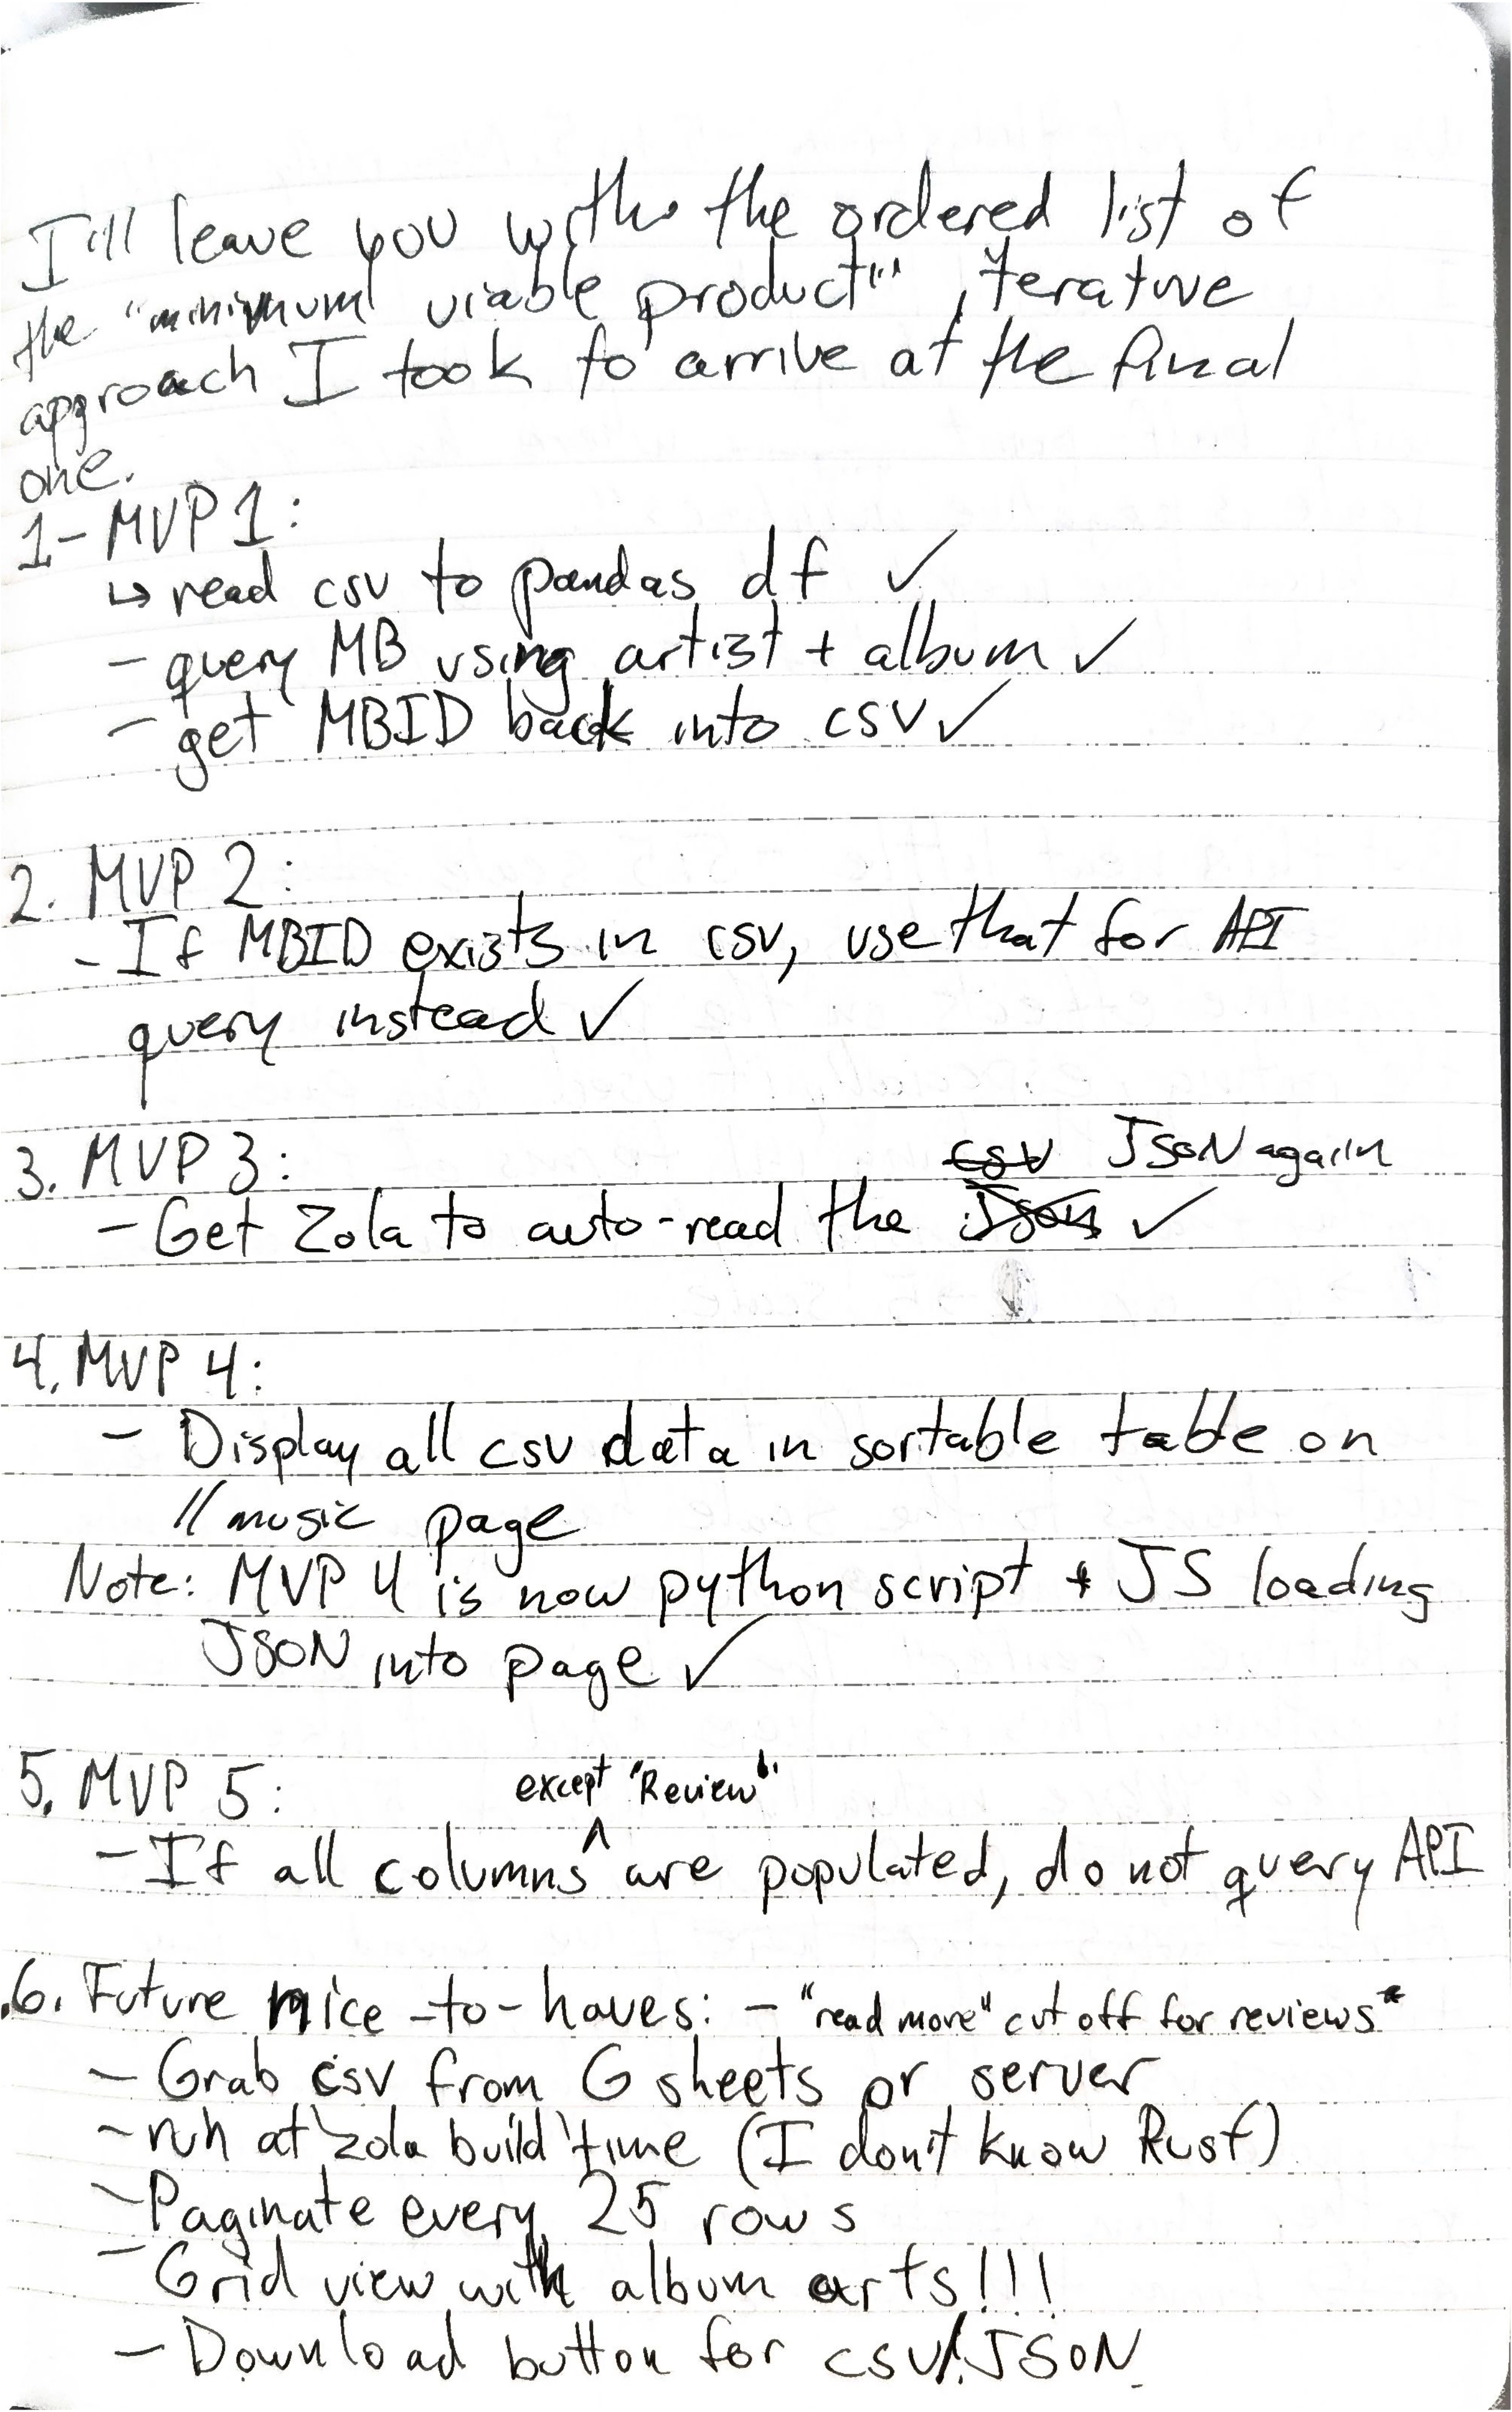 I'll leave you with the ordered list of
the "minimum viable product" iterative
approach I took to arrive at the final
one.
1- MVP 1:
↳ read csv to pandas df ✓
- query MB using artist + album ✓
- get MBID back into csv ✓
2. MVP 2:
- If MBID exists in csv, use that for API
query instead ✓
3. MVP 3: csv JSON again
- Get Zola to auto-read the JSON ✓
4. MVP 4:
- Display all csv data in sortable table on
//music page
Note: MVP 4 is now python script + JS loading
JSON into page ✓
5. MVP 5: except "Review"
- If all columns ^ are populated, do not query API
6. Future nice-to-haves: - "read more" cut off for reviews*
- Grab csv from G sheets or server
- run at 'zola build' time (I don't know Rust)
- Paginate every 25 rows
- Grid view with album arts!!!
- Download button for csv/JSON